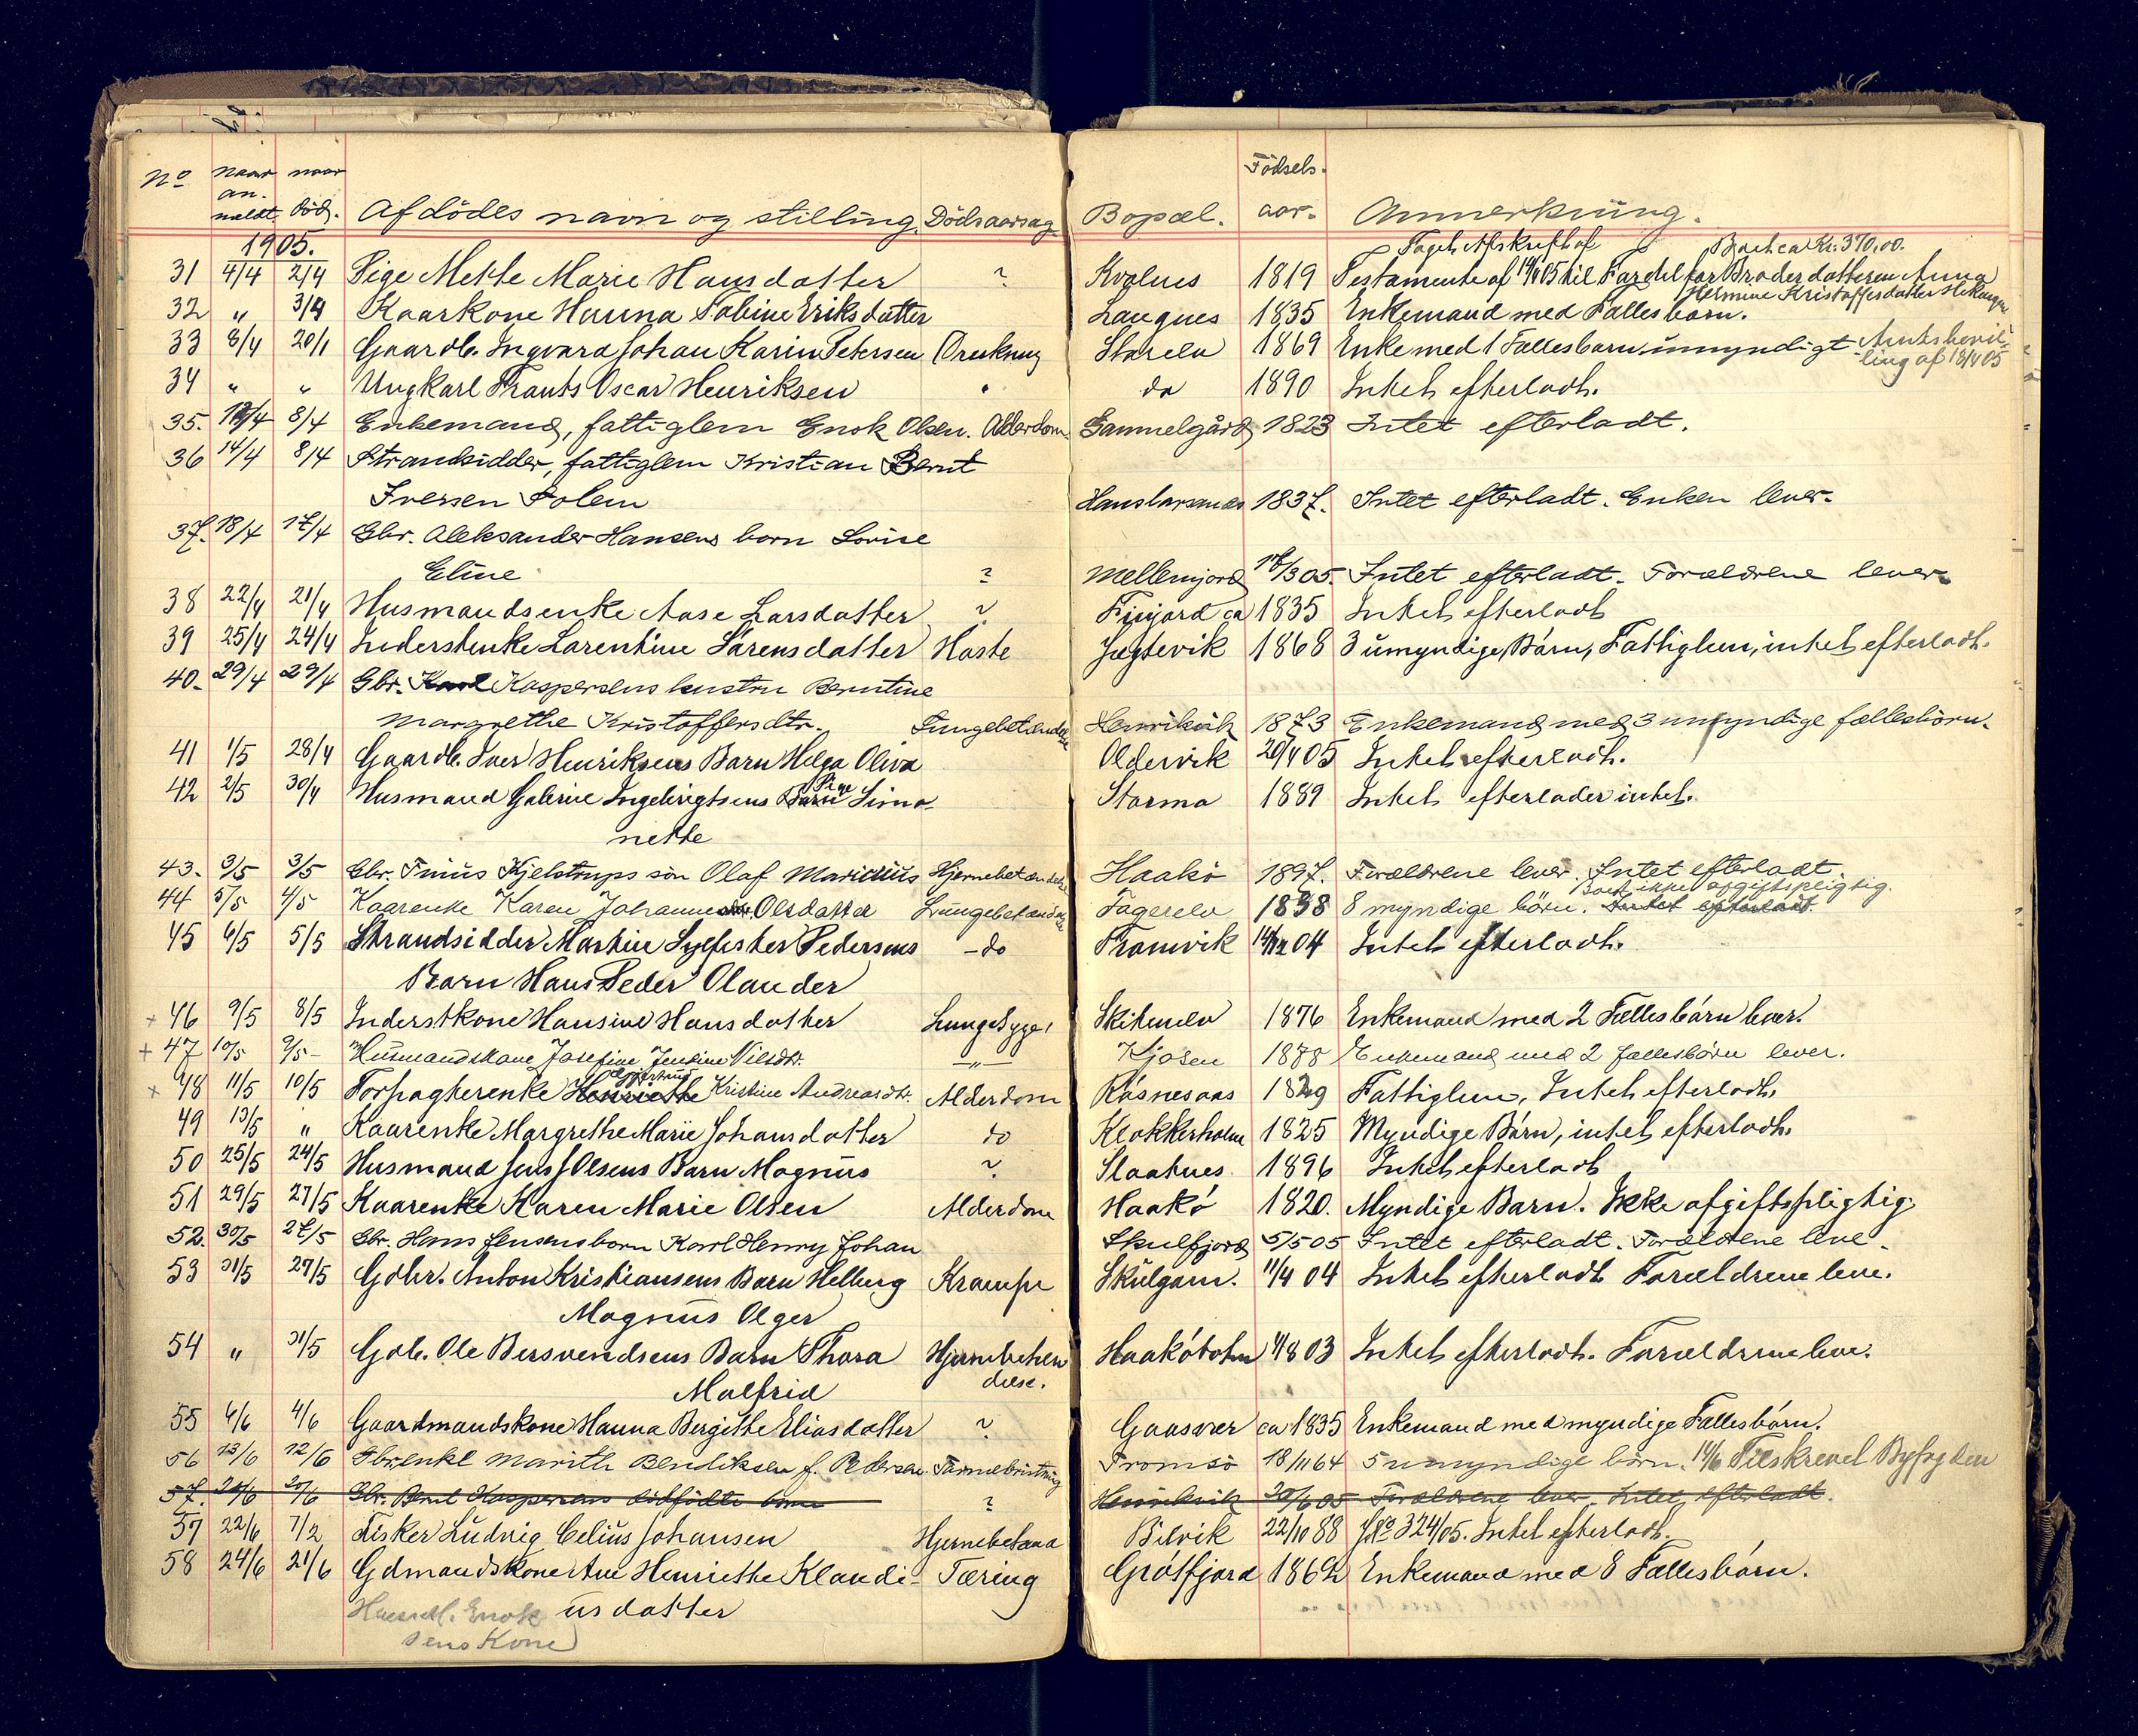 No naar an- meldt. naar död. Afdödes navn og stilling. Dödsaarsag. Bopæl. Födsels- aar. Anmerkning.
1905.
Taget Afskrift af Boet ca Kr. 370,00.
31 4/4 2/4 Pige Mette Marie Hansdatter ? Kvalnes 1819 Testamente af til Fordel for Broderdatteren Anna
Hermine Kristoffersdatter
32 " 3/4 Kaarkone Hanna Sabine Eriksdatter Langnes 1835 Enkemand med Fællesbørn.
33 8/4 20/1 Gaardb. Ingvard Johan Karin Petersen Drukning Storelv 1869 Enke med 1 Fællesbarn umyndigt Amtsbevil-
ling af 18/4 05
34 " " Ungkarl Frants Oscar Henriksen " do 1890 Intet efterladt.
35. 12/4 8/4 Enkemand, fattiglem Enok Olsen. Alderdom Gammelgård 1823 Intet efterladt.
36 14/4 8/4 Strandsidder, fattiglem Kristian Bernt
Iversen Solem Hanslarsanes 1837. Intet efterladt. Enken lever.
37. 18/4 17/4 Gbr. Aleksander Hansens barn Lovise
Eline ? Mellemjord /3 05. Intet efterladt. Forældrene lever.
38 22/4 21/4 Husmandsenke Aase Larsdatter ? Finjord ca 1835 Intet efterladt
39 25/4 24/4 Inderstenke Larentine Sørensdatter Hoste Jægtevik 1868 3 umyndige Børn, Fattiglem, intet efterladt.
40. 29/4 29/4 Gbr. Karl Kaspersens hustru Berntine
Margrethe Kristoffersdtr. Lungebetændelse Henrikvik 1873 Enkemand med 3 umyndige fællesbörn.
41 1/5 28/4 Gaardb. Iver Henriksens Barn Helga Oliva Oldervik 20/4 05 Intet efterladt.
42 2/5 30/4 Husmand Galerius Ingebrigtsens Barn Pige Simo- Stormo 1889 Intet efterlader intet.
nette
43. 3/5 3/5 Gbr. Tinius Kjelstrups sön Olaf Marinius Hjernebetændelse Haakö 1897. Forældrene lever. Intet efterladt.
Boet ikke afgiftspligtig.
44 5/5 4/5 Kaarenke Karen Johanne Olsdatter Lungebetændelse Fagerelv 1838 8 myndige börn. Intet efterladt.
45 6/5 5/5 Strandsidder Martin Sylfester Pedersens - do Tromvik 14/12 04 Intet efterladt.
Barn Hans Peder Olander
+ 46 9/5 8/5 Inderstkone Hansine Hansdatter Lungesyge Skitnelv 1876 Enkemand med 2 Fællesbørn lever.
+ 47 10/5 9/5 - Husmandskone Josefine Jensine Nilsdtr. - " - Kjosen 1878 Enkemand med 2 fællesbörn lever.
+ 48 11/5 10/5 Forpagterenke Henriette Kristine Andreasdtr. Alderdom Røsnesaas 1829 Fattiglem, Intet efterladt.
49 13/5 " Kaarenke Margrethe Marie Johansdatter do Klokkerholm 1825 Myndige Børn, intet efterladt.
50 25/5 24/5 Husmand Jens J Olsens Barn Magnus ? Slaatnes 1896 Intet efterladt
51 29/5 27/5 Kaarenke Karen Marie Olsen Alderdom Haakø 1820. Myndige Børn. Ikke afgiftspligtig
52. 30/5 27/5 Gbr. Hans Jensens barn Karl Henry Johan Skulfjord 5/5 05 Intet efterladt. Forældrene leve.
53 31/5 27/5 Gdbr. Anton Kristiansens Barn Helberg Krampe Skulgam. 11/4 04 Intet efterladt Forældrene leve.
Magnus Olger
54 " 31/5 Gdb. Ole Bersvendsens Barn Thora Hjernebeten Haakøbotn 4/8 03 Intet efterladt. Forældrene leve.
Malfrid delse.
55 6/6 4/6 Gaardmandskone Hanna Bergithe Eliasdatter ? Gaasvær ca 1835 Enkemand med myndige Fællesbørn.
56 13/6 12/6 Gbrenke Marith Bendiksen f. Pedersen. Tarmebristning Tromsö 18/11 64 5 umyndige börn. 14/6 Tilskrevet Byfogden
57. 20/6 20/6 Gbr. Bernt Kaspersens dödfödte barn ? Henrikvik 20/6 05 Forældrene lever. Intet efterladt.
57 22/6 7/2 Fisker Ludvig Celius Johansen Hjernebetænd Bilvik 22/10 88 J No 324/05. Intet efterladt.
58 24/6 21/6 Gdmandskone Ane Henriette Klaudi- Tæring Grøtfjord 1862 Enkemand med 8 Fællesbørn.
Enok usdatter
sens Kone